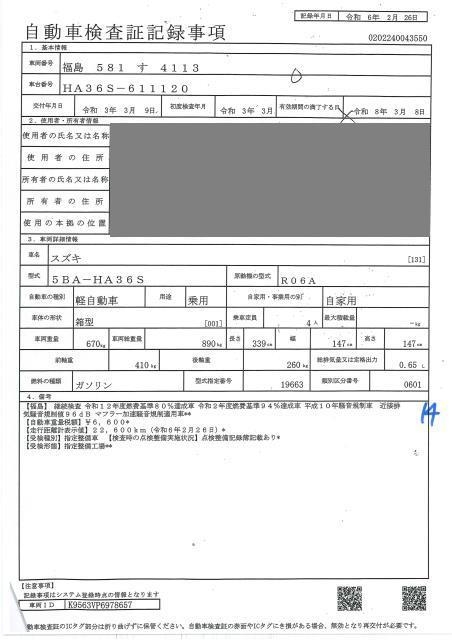 記録年月日 令和 6年 2月 26日
自動車検査証記録事項
0202240043550
1．基本情報
車両番号 福島 581 す 4113
車台番号 HA36S-611120
交付年月日 令和 3年 3月 9日 初度検査年月 令和 3年 3月 有効期間の満了する日 令和 8年 3月 8日
2．使用者・所有者情報
使用者の氏名又は名称
使用者の住所
所有者の氏名又は名称
所有者の住所
使用の本拠の位置
3．車両詳細情報
車名 スズキ [131]
型式 5BA-HA36S 原動機の型式 R06A
自動車の種別 軽自動車 用途 乗用 自家用・事業用の別 自家用
車体の形状 箱型 [001] 乗車定員 4人 最大積載量 -kg
車両重量 670kg 車両総重量 890kg 長さ 339cm 幅 147cm 高さ 147cm
前軸重 410kg 後軸重 260kg 総排気量又は定格出力 0.65 L
燃料の種類 ガソリン 型式指定番号 19663 類別区分番号 0601
4．備考
【福島】 継続検査 令和12年度燃費基準80%達成車 令和2年度燃費基準94%達成車 平成10年騒音規制車 近接排
気騒音規制値96dB マフラー加速騒音規制適用車**
【自動車重量税額】¥6,600*
【走行距離計表示値】22,600km（令和6年2月26日）*
【受検種別】指定整備車 【検査時の点検整備実施状況】点検整備記録簿記載あり*
【受検形態】指定整備工場**
【注意事項】
記録事項はシステム登録時点の情報となります
車両ID K9563VP6978657
自動車検査証のICタグ部分は折り曲げずに保管ください。自動車検査証の券面やICタグにき損がある場合、無効となり再交付が必要です。